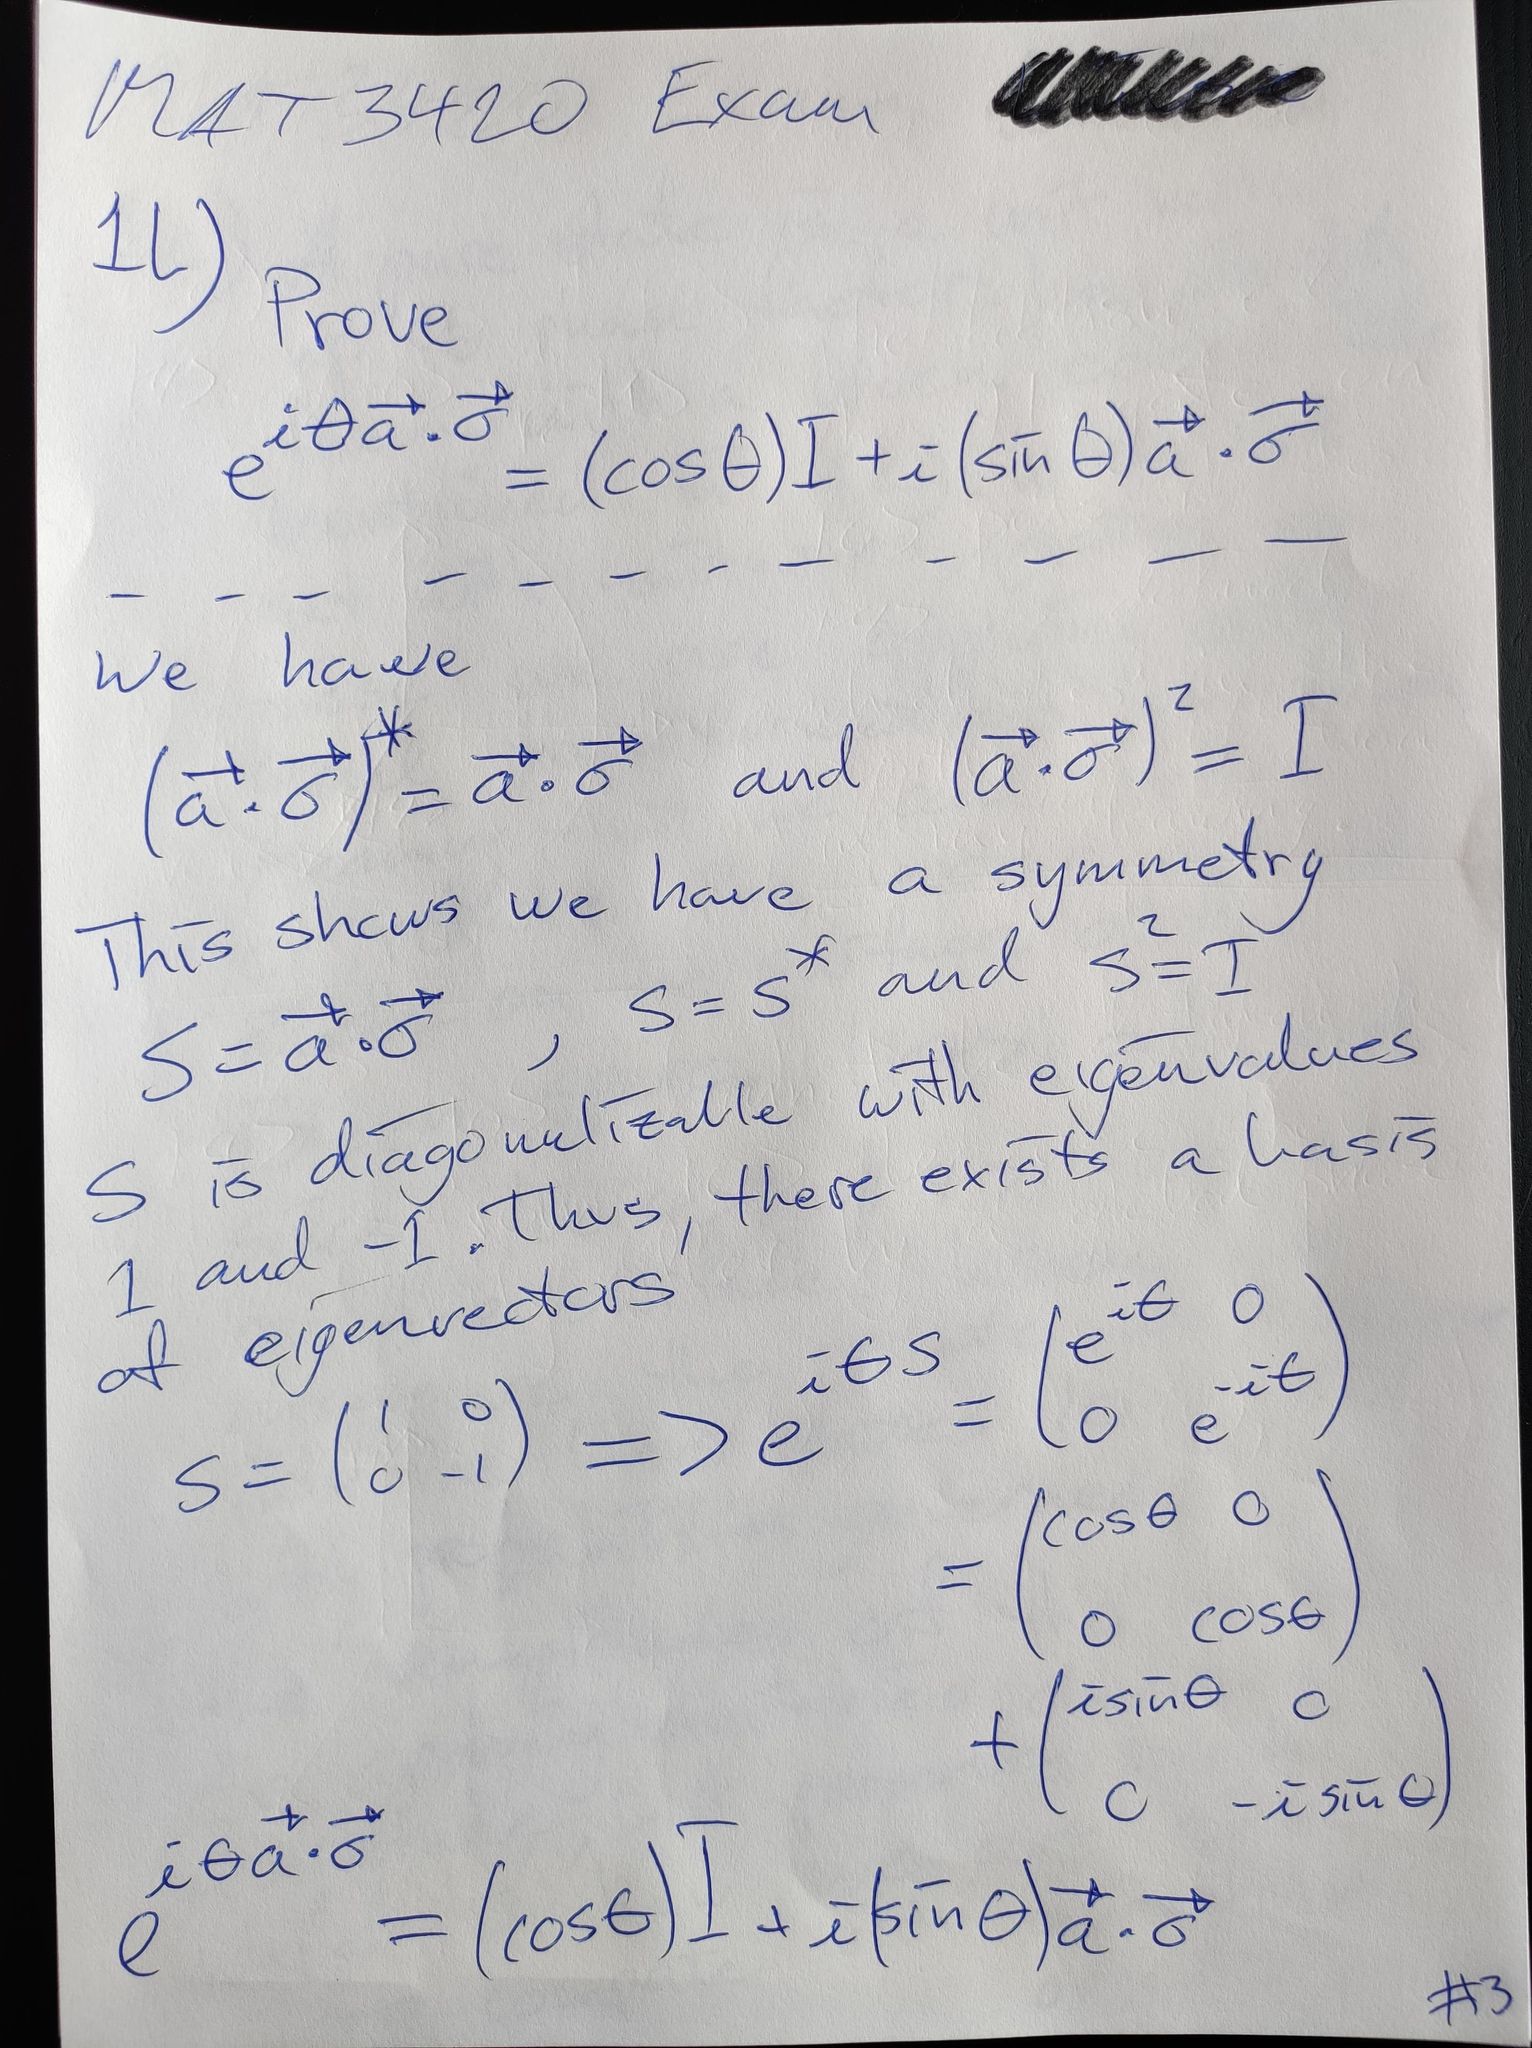 MAT3420 Exam
1b)
Prove
e^{iθ\vec{a}·\vec{σ}} = (cosθ)I + i(sinθ)\vec{a}·\vec{σ}
We have
(\vec{a}·\vec{σ})^* = \vec{a}·\vec{σ} and (\vec{a}·\vec{σ})^2 = I
This shows we have a symmetry
S = \vec{a}·\vec{σ} , S = S^* and S^2 = I
S is diagonalizable with eigenvalues
1 and -1. Thus, there exists a basis
of eigenvectors
S = (1 0; 0 -1) => e^{iθS} = (e^{iθ} 0; 0 e^{-iθ})
= (cosθ 0; 0 cosθ)
+ (isinθ 0; 0 -isinθ)
e^{iθ\vec{a}·\vec{σ}} = (cosθ)I + i(sinθ)\vec{a}·\vec{σ}
#3